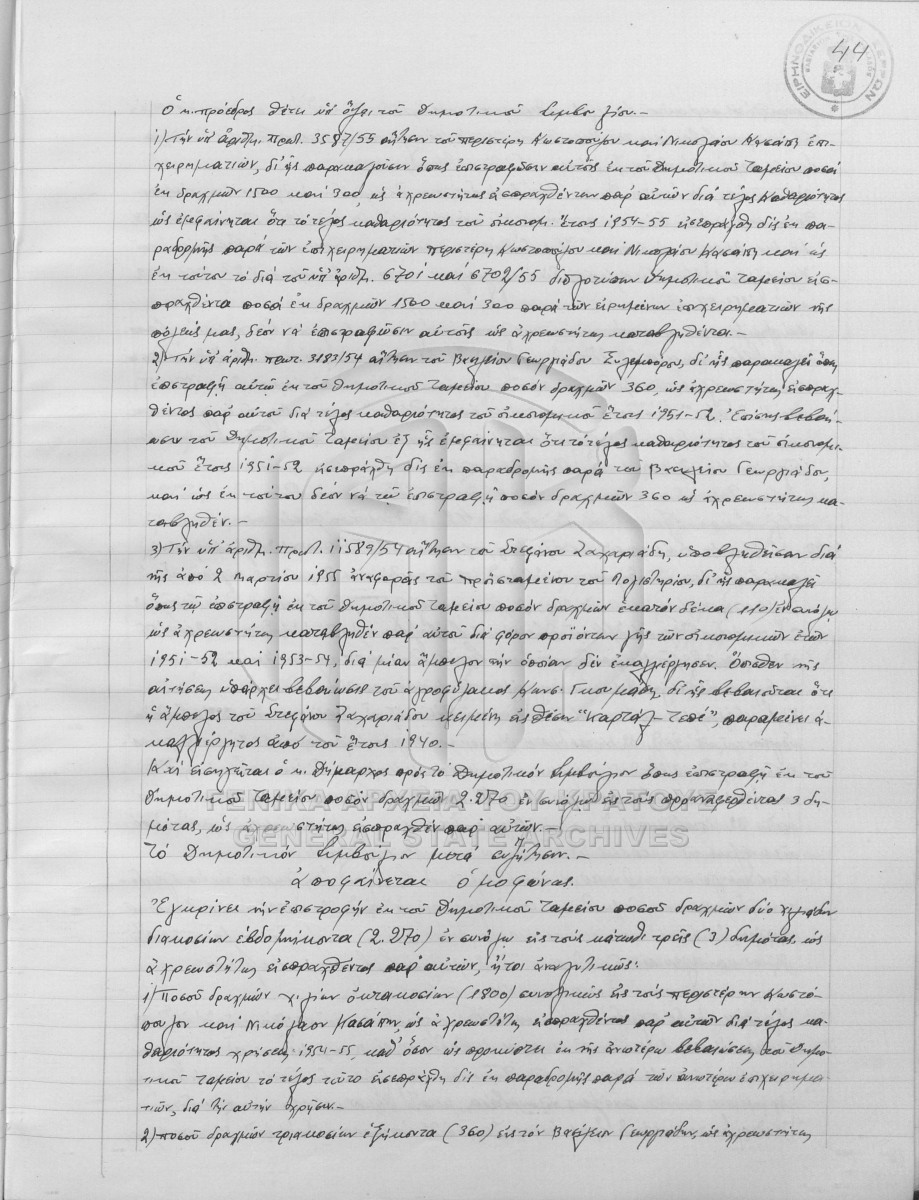 44
ΕΙΡΗΝΟΔΙΚΕΙΟΝ ΣΕΡΡΩΝ
Ὁ κ. πρόεδρος θέτει ὑπ' ὄψει τοῦ Δημοτικοῦ Συμβουλίου.-
1) Τήν ὑπ' ἀριθ. πρωτ. 3587/55 αἴτησιν τοῦ Περιστέρη Κωστοπούλου καί Νικολάου Κασάπη ἐπι-
χειρηματιῶν, δι' ἧς παρακαλοῦσιν ὅπως ἐπιστραφῶσιν αὐτοῖς ἐκ τοῦ Δημοτικοῦ Ταμείου ποσά
ἐκ δραχμῶν 1500 καί 300, ὡς ἀχρεωστήτως εἰσπραχθέντων παρ' αὐτῶν διά τέλος καθαριότητος
ὡς ἐμφαίνηται ὅτι τό τέλος καθαριότητος τοῦ οἰκονομ. ἔτους 1954-55 εἰσεπράχθη δίς ἐκ πα-
ραδρομῆς παρά τῶν ἐπιχειρηματιῶν Περιστέρη Κωστοπούλου καί Νικολάου Κασάπη καί ὡς
ἐκ τούτου τό διά τοῦ ὑπ' ἀριθ. 6701 καί 6702/55 διπλοτύπων Δημοτικοῦ Ταμείου εἰσ-
πραχθέντα ποσά ἐκ δραχμῶν 1500 καί 300 παρά τῶν εἰρημένων ἐπιχειρηματιῶν τῆς
πόλεώς μας, δέον νά ἐπιστραφῶσιν αὐτοῖς ὡς ἀχρεωστήτως καταβληθέντα.-
2) Τήν ὑπ' ἀριθ. πρωτ. 3183/54 αἴτησιν τοῦ Βασιλείου Γεωργιάδου Ξυλεμπόρου, δι' ἧς παρακαλεῖ ὅπως
ἐπιστραφῇ αὐτῷ ἐκ τοῦ Δημοτικοῦ Ταμείου ποσόν δραχμῶν 360, ὡς ἀχρεωστήτως εἰσπραχ-
θέντος παρ' αὐτοῦ διά τέλος καθαριότητος τοῦ οἰκονομικοῦ ἔτους 1951-52. Ἐπίσης βεβαί-
ωσιν τοῦ Δημοτικοῦ Ταμείου ἐξ ἧς ἐμφαίνηται ὅτι τό τέλος καθαριότητος τοῦ οἰκονομι-
κοῦ ἔτους 1951-52 εἰσεπράχθη δίς ἐκ παραδρομῆς παρά του Βασιλείου Γεωργιάδου,
καί ὡς ἐκ τούτου δέον νά τῷ ἐπιστραφῇ ποσόν δραχμῶν 360 ὡς ἀχρεωστήτως κα-
ταβληθέν.-
3) Τήν ὑπ' ἀριθ. πρωτ. 11589/54 αἴτησιν τοῦ Στεφάνου Ζαχαριάδη, ὑποβληθεῖσαν διά
τῆς ἀπό 2 Μαρτίου 1955 ἀναφορᾶς τοῦ προϊσταμένου τοῦ Λογιστηρίου, δι' ἧς παρακαλεῖ
ὅπως τῷ ἐπιστραφῇ ἐκ τοῦ Δημοτικοῦ Ταμείου ποσόν δραχμῶν ἑκατόν δέκα (110) ἐν συνόλῳ
ὡς ἀχρεωστήτως καταβληθέν παρ' αὐτοῦ διά φόρον προϊόντων γῆς τῶν οἰκονομικῶν ἐτῶν
1951-52 καί 1953-54, διά μίαν ἄμπελον τήν ὁποίαν δέν ἐκαλλιέργησεν. Ὄπισθεν τῆς
αἰτήσεως ὑπάρχει βεβαίωσις τοῦ ἀγροφύλακος Κωνσ. Γκουμάδη, δι' ἧς βεβαιοῦται ὅτι
ἡ ἄμπελος τοῦ Στεφάνου Ζαχαριάδου κειμένη εἰς θέσιν "Καρτάλ-Τεπέ", παραμένει ἀ-
καλλιέργητος ἀπό τοῦ ἔτους 1940.-
Καί εἰσηγεῖται ὁ κ. Δήμαρχος πρός τό Δημοτικόν Συμβούλιον ὅπως ἐπιστραφῇ ἐκ τοῦ
Δημοτικοῦ Ταμείου ποσόν δραχμῶν 2.270 ἐν συνόλῳ εἰς τούς προαναφερθέντας 3 δη-
μότας, ὡς ἀχρεωστήτως εἰσπραχθέν παρ' αὐτῶν.-
ΓΕΝΙΚΑ ΑΡΧΕΙΑ ΤΟΥ ΚΡΑΤΟΥΣ
GENERAL STATE ARCHIVES
Τό Δημοτικόν Συμβούλιον μετά συζήτησιν.-
ἀποφαίνεται ὁμοφώνως.
Ἐγκρίνει τήν ἐπιστροφήν ἐκ τοῦ Δημοτικοῦ Ταμείου ποσοῦ δραχμῶν δύο χιλιάδων
διακοσίων ἑβδομήκοντα (2.270) ἐν συνόλῳ εἰς τούς κάτωθι τρεῖς (3) δημότας, ὡς
ἀχρεωστήτως εἰσπραχθέντος παρ' αὐτῶν, ἤτοι ἀναλυτικῶς:
1) Ποσοῦ δραχμῶν χιλίων ὀκτακοσίων (1800) συνολικῶς εἰς τούς Περιστέρην Κωστό-
πουλον καί Νικόλαον Κασάπην, ὡς ἀχρεωστήτως εἰσπραχθέντος παρ' αὐτῶν διά τέλος κα-
θαριότητος χρήσεως 1954-55, καθ' ὅσον ὡς προκύπτει ἐκ τῆς ἀνωτέρω βεβαιώσεως τοῦ Δημο-
τικοῦ Ταμείου τό τέλος τοῦτο εἰσεπράχθη δίς ἐκ παραδρομῆς παρά τῶν ἀνωτέρω ἐπιχειρημα-
τιῶν, διά τήν αὐτήν χρῆσιν.-
2) ποσοῦ δραχμῶν τριακοσίων ἑξήκοντα (360) εἰς τόν Βασίλειον Γεωργιάδην, ὡς ἀχρεωστήτως